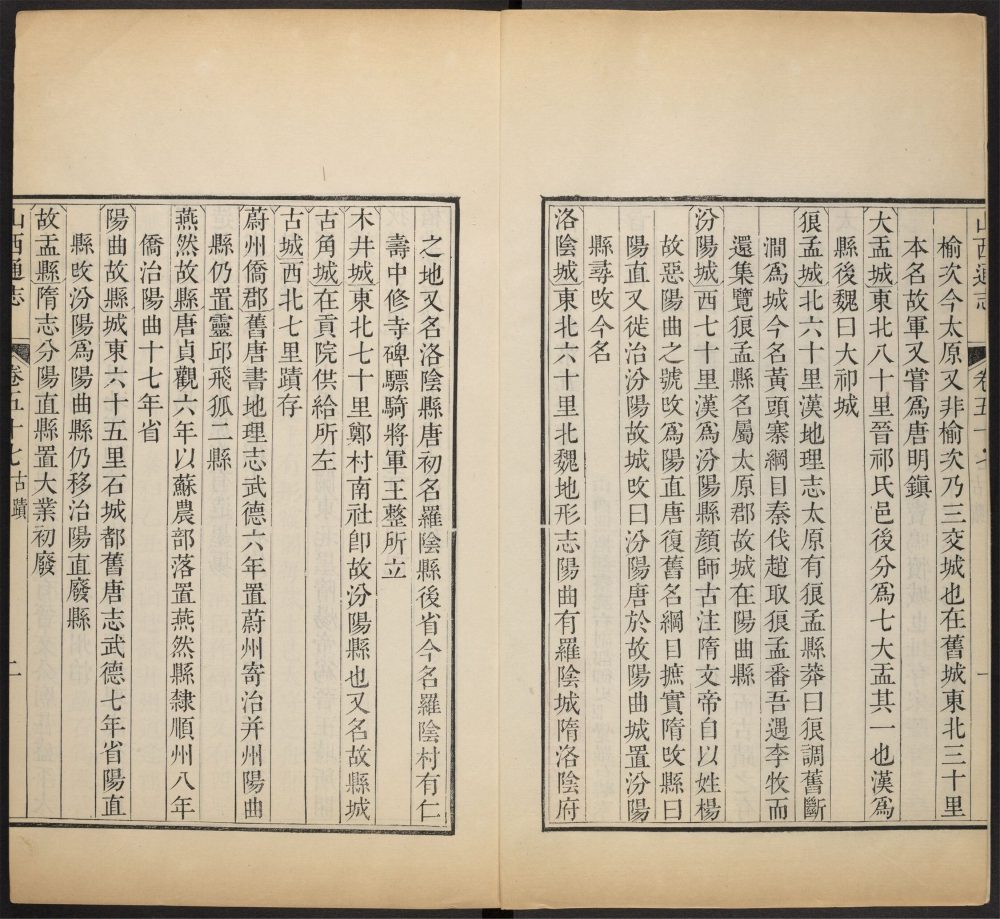 山西通志 卷五十七 一
榆次今太原又非榆次乃三交城也在舊城東北三十里
本名故軍又嘗爲唐明鎭
大盂城東北八十里晉祁氏邑後分爲七大盂其一也漢爲
縣後魏曰大祁城
狼孟城北六十里漢地理志太原有狼孟縣莽曰狼調舊斷
澗爲城今名黃頭寨綱目秦伐趙取狼孟番吾遇李牧而
還集覽狼孟縣名屬太原郡故城在陽曲縣
汾陽城西七十里漢爲汾陽縣顏師古注隋文帝自以姓楊
故惡陽曲之號攺爲陽直唐復舊名綱目摭實隋攺縣曰
陽直又徙治汾陽故城攺曰汾陽唐於故陽曲城置汾陽
縣尋攺今名
洛陰城東北六十里北魏地形志陽曲有羅陰城隋洛陰府
之地又名洛陰縣唐初名羅陰縣後省今名羅陰村有仁
壽中修寺碑驃騎將軍王整所立
木井城東北七十里鄭村南社卽故汾陽縣也又名故縣城
古角城在貢院供給所左
古城西北七里蹟存
蔚州僑郡舊唐書地理志武德六年置蔚州寄治并州陽曲
縣仍置靈邱飛狐二縣
燕然故縣唐貞觀六年以蘇農部落置燕然縣隸順州八年
僑治陽曲十七年省
陽曲故縣城東六十五里石城都舊唐志武德七年省陽直
縣攺汾陽爲陽曲縣仍移治陽直廢縣
故盂縣隋志分陽直縣置大業初廢
山西通志 卷五十七古蹟 二